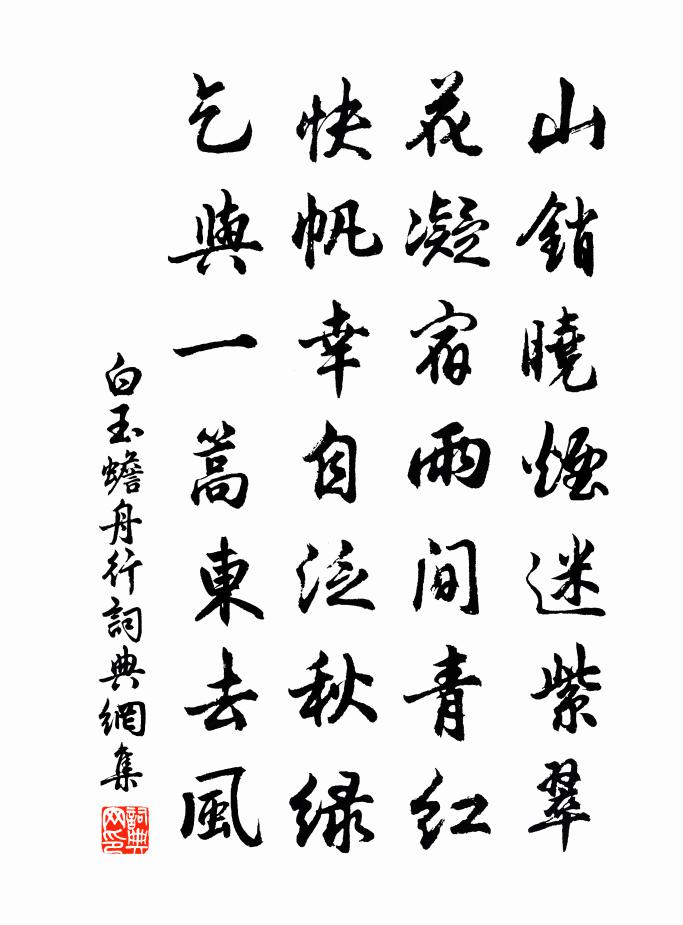 山銷曉煙迷紫翠
花凝宿雨間青紅
快帆幸自泛秋緑
乞與一篙東去風
白玉蟾舟行詞典網集
詞典網印